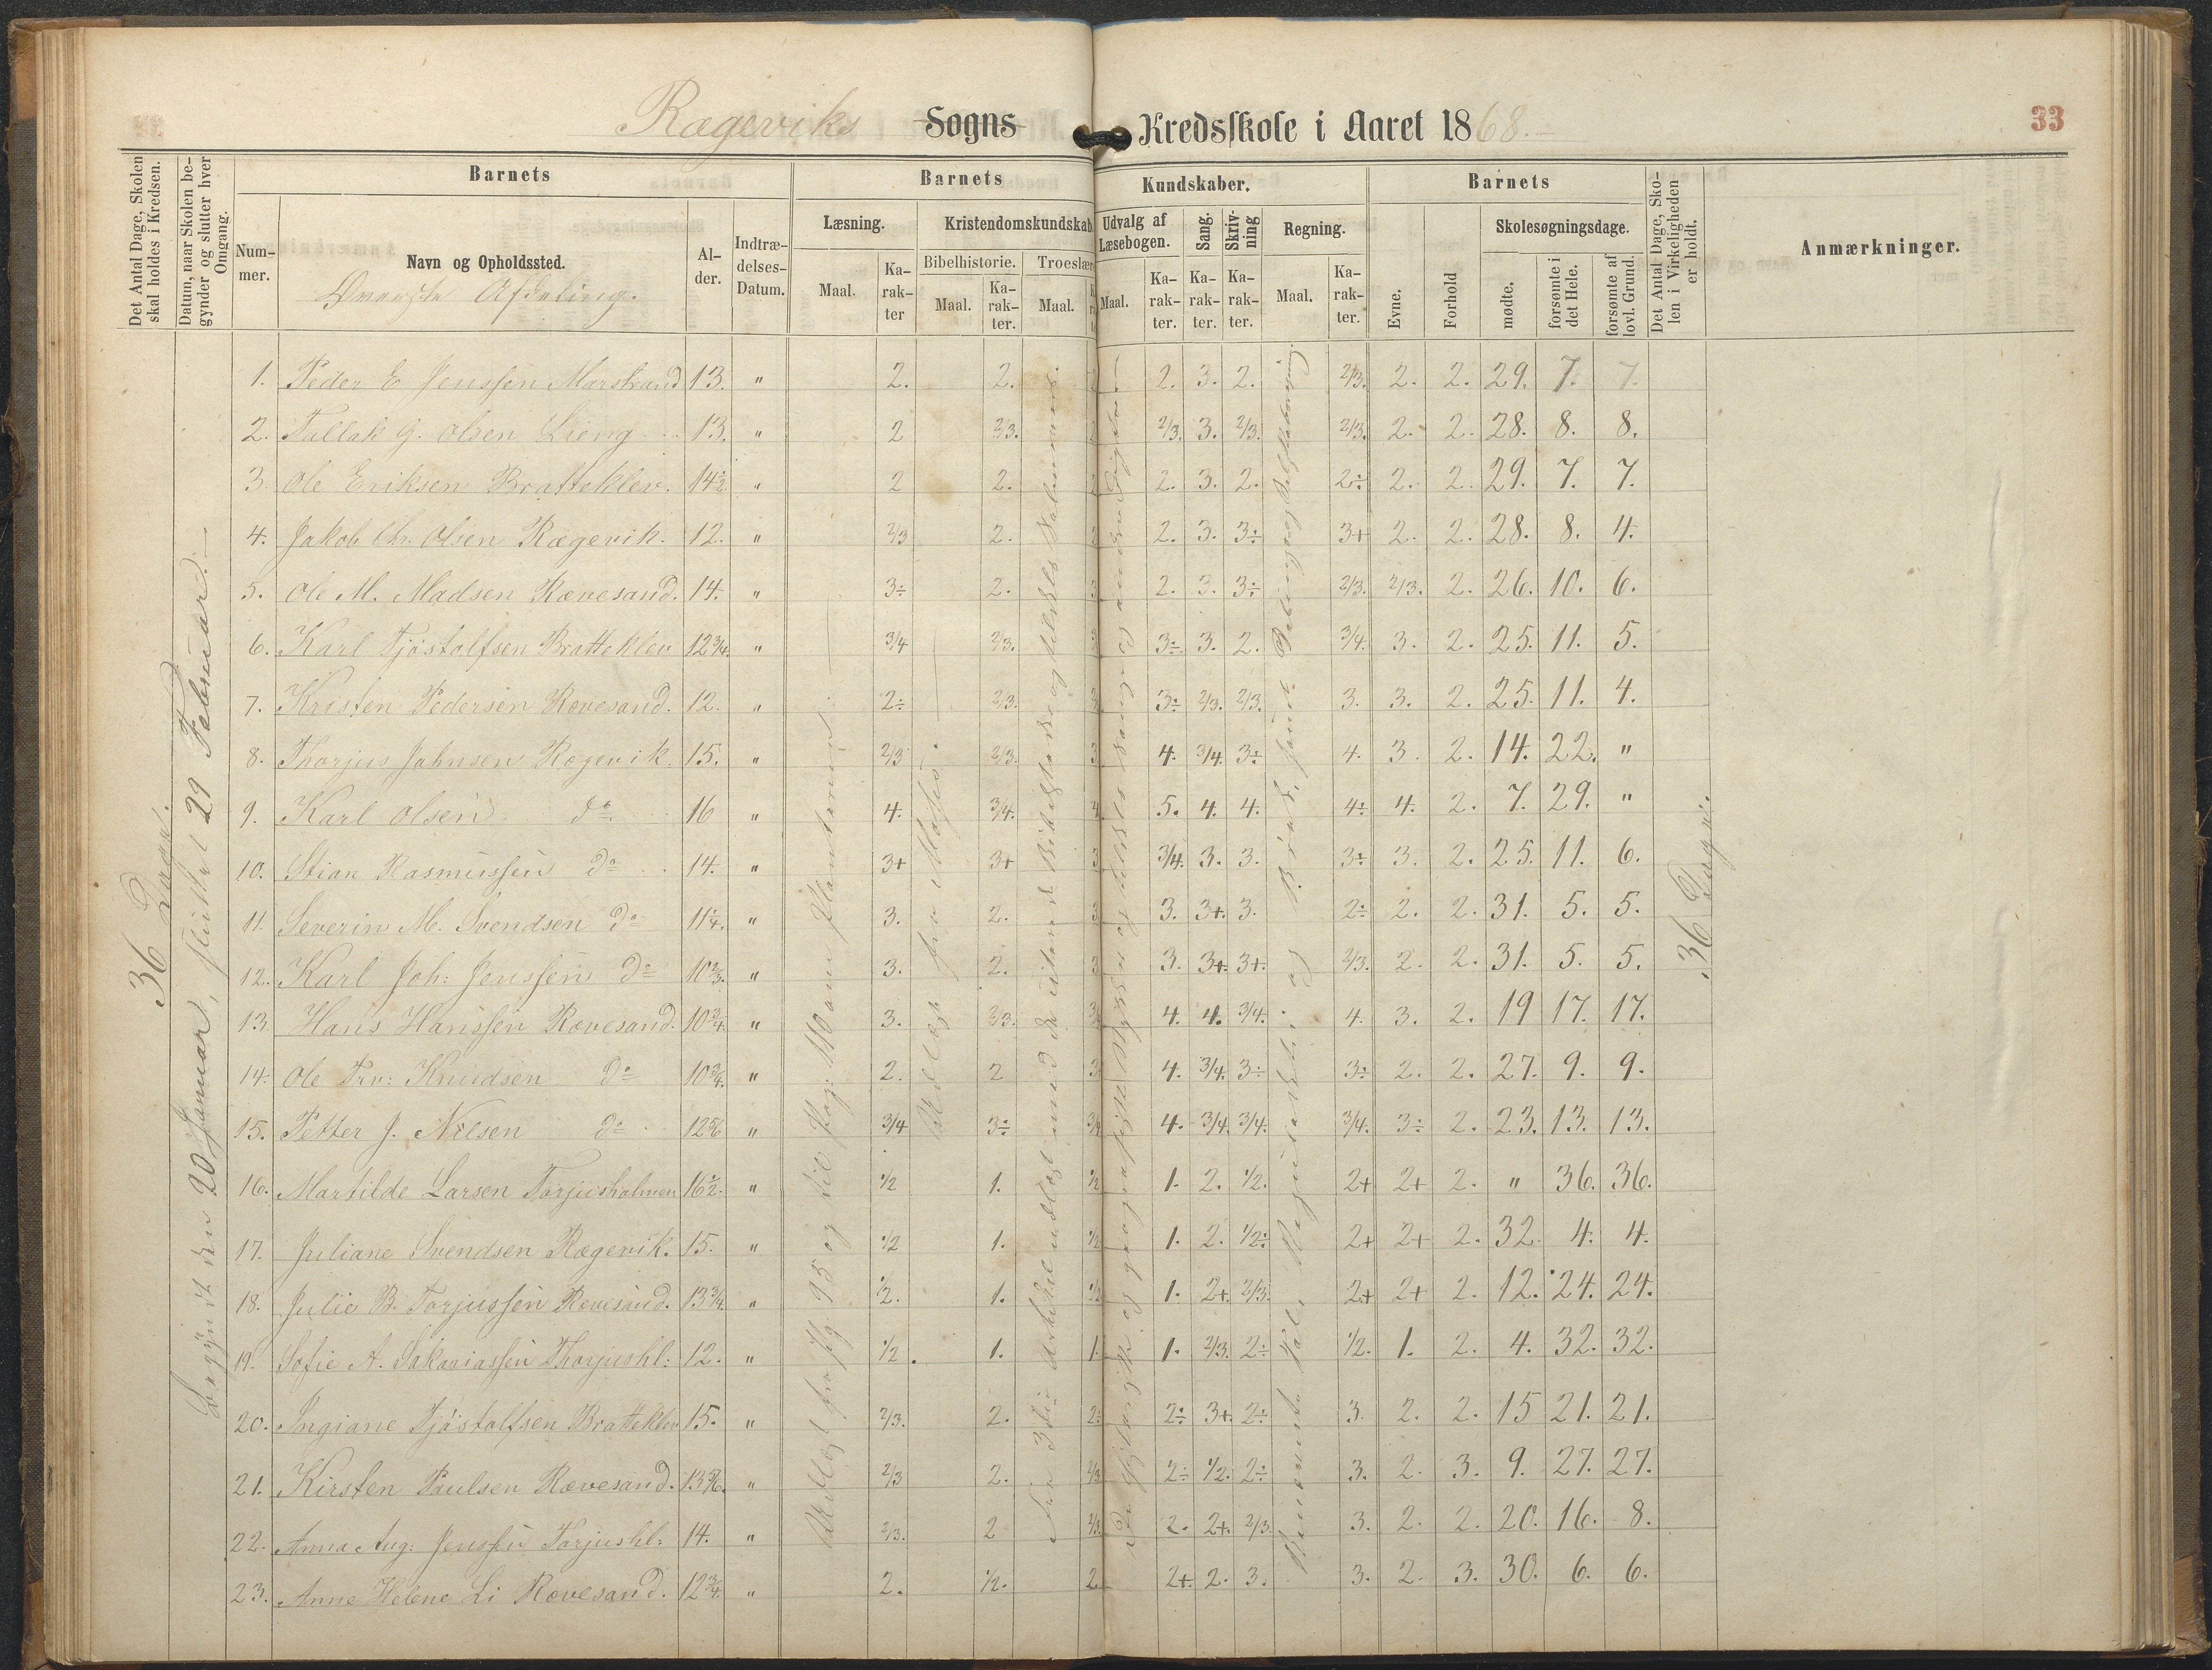 Rægeviks Sogns Kredsskole i Aaret 1868.
33
Det Antal Dage, Skolen skal holdes i Kredsen.
Datum, naar Skolen begynder og slutter hver Omgang.
Barnets
Barnets Kundskaber.
Barnets
Det Antal Dage, Skolen i Virkeligheden er holdt.
Anmærkninger.
Nummer.
Navn og Opholdssted.
Øverste Afdeling.
Alder.
Indtrædelses-Datum.
Læsning.
Kristendomskundskab
Udvalg af Læsebogen.
Sang.
Skrivning
Regning.
Evne.
Forhold
Skolesøgningsdage.
Bibelhistorie.
Troeslære
Maal.
Karakter
Maal.
Karakter.
Maal.
Maal.
Karakter.
Karakter.
Karakter.
Maal.
Karakter.
mødte.
forsømte i det Hele.
forsømte af lovl. Grund.
36 Dage.
begyndt den 20 Januar, sluttet 29 Februar.
36 Dage.
1. Peder E Jenssen Marstrand 13. " 2. 2. 2 2. 3. 2. 2/3. 2. 2. 29. 7. 7.
2. Tallak G. Olsen Lieng 13. " 2 2/3. 2 2/3. 3. 2/3. 2/3. 2. 2. 28. 8. 8.
3. Ole Eriksen Bratteklev. 14½. " 2 2. 2 2. 3. 2. 2÷ 2. 2. 29. 7. 7.
4. Jakob Chr. Olsen Rægevik. 12. " 2/3 2. 2 2. 3. 3÷ 3+ 2. 2. 28. 8. 4.
5. Ole M. Madsen Rævesand. 14. " 3÷ 2. 3 2. 3. 3÷ 2/3. 2/3. 2. 26. 10. 6.
6. Karl Tjöstolfsen Bratteklev 12¾. " 3/4 2/3. 3 3÷ 3. 2. 3/4. 3. 2. 25. 11. 5.
7. Kristen Pedersen Rævesand. 12. " 2÷ 2/3. 3 3÷ 2/3. 2/3. 3. 3. 2. 25. 11. 4.
8. Thorjus Jahnsen Rægevik. 15. " 2/3 2/3. 3 4. 3/4. 3÷ 4. 3. 2. 14. 22. "
9. Karl Olsen do 16 " 4. 3/4. 4 5. 4. 4. 4÷ 4. 2. 7. 29. "
10. Stian Rasmussen do 14. " 3+ 3+ 3 3/4. 3. 3. 3÷ 3. 2. 25. 11. 6.
11. Severin M. Svendsen do 11¼. " 3. 2. 3 3. 3+. 3. 2÷ 2. 2. 31. 5. 5.
12. Karl Joh: Jenssen do 10⅔. " 3. 2. 3 3. 3+. 3+. 2/3. 2. 2. 31. 5. 5.
13. Hans Hanssen Rævesand. 10¾. " 3. 2/3. 3/4 4. 4. 3/4. 4. 3. 2. 19 17. 17.
14. Ole Trv: Knudsen do 10¾. " 2. 2 3 4. 3/4. 3÷ 3÷ 2. 2. 27. 9. 9.
15. Petter J. Nilsen do 12 5/6 " 3/4 3÷ 3/4 4. 3/4. 3/4. 3/4. 3÷ 2. 23. 13. 13.
16. Martilde Larsen Torjusholmen 16½. " 1/2 1. 1/2 1. 2. 1/2. 2+ 2+ 2. " 36. 36.
17. Juliane Svendsen Rægevik. 15. " 1/2 1. 1/2 1. 2. 1/2÷ 2+ 2+ 2. 32. 4. 4.
18. Julie B. Torjussen Rævesand. 13¾. " 1/2. 1. 1/2 1. 2+. 2/3. 2+ 2+ 2. 12. 24. 24.
19. Sofie A. Sakariassen Thorjushl: 12. " 1/2. 1. 1. 1. 2/3. 2÷ 1/2. 1. 2. 4. 32. 32.
20. Ingiane Tjöstolfsen Bratteklev 15. " 2/3. 2. 2÷ 2÷ 3+. 2÷ 3. 2. 2. 15 21. 21.
21. Kirsten Paulsen Rævesand. 13 5/6. " 2/3 2. 2/3 2÷ 1/2. 2÷ 3. 2. 3. 9. 27. 27.
22. Anna Aug: Jenssen Torjushl: 14. " 2/3. 2 2/3 2. 2+. 2/3. 3. 2. 2. 20. 16. 8.
23. Anne Helene Li Rævesand. 12¾. " 2. 1/2. 2 2+. 2. 3. 3. 2. 3. 30. 6. 6.
Udlagt fra Pg. 95 og til Pag: 110 om Planterne
Udlagt fra Moses.